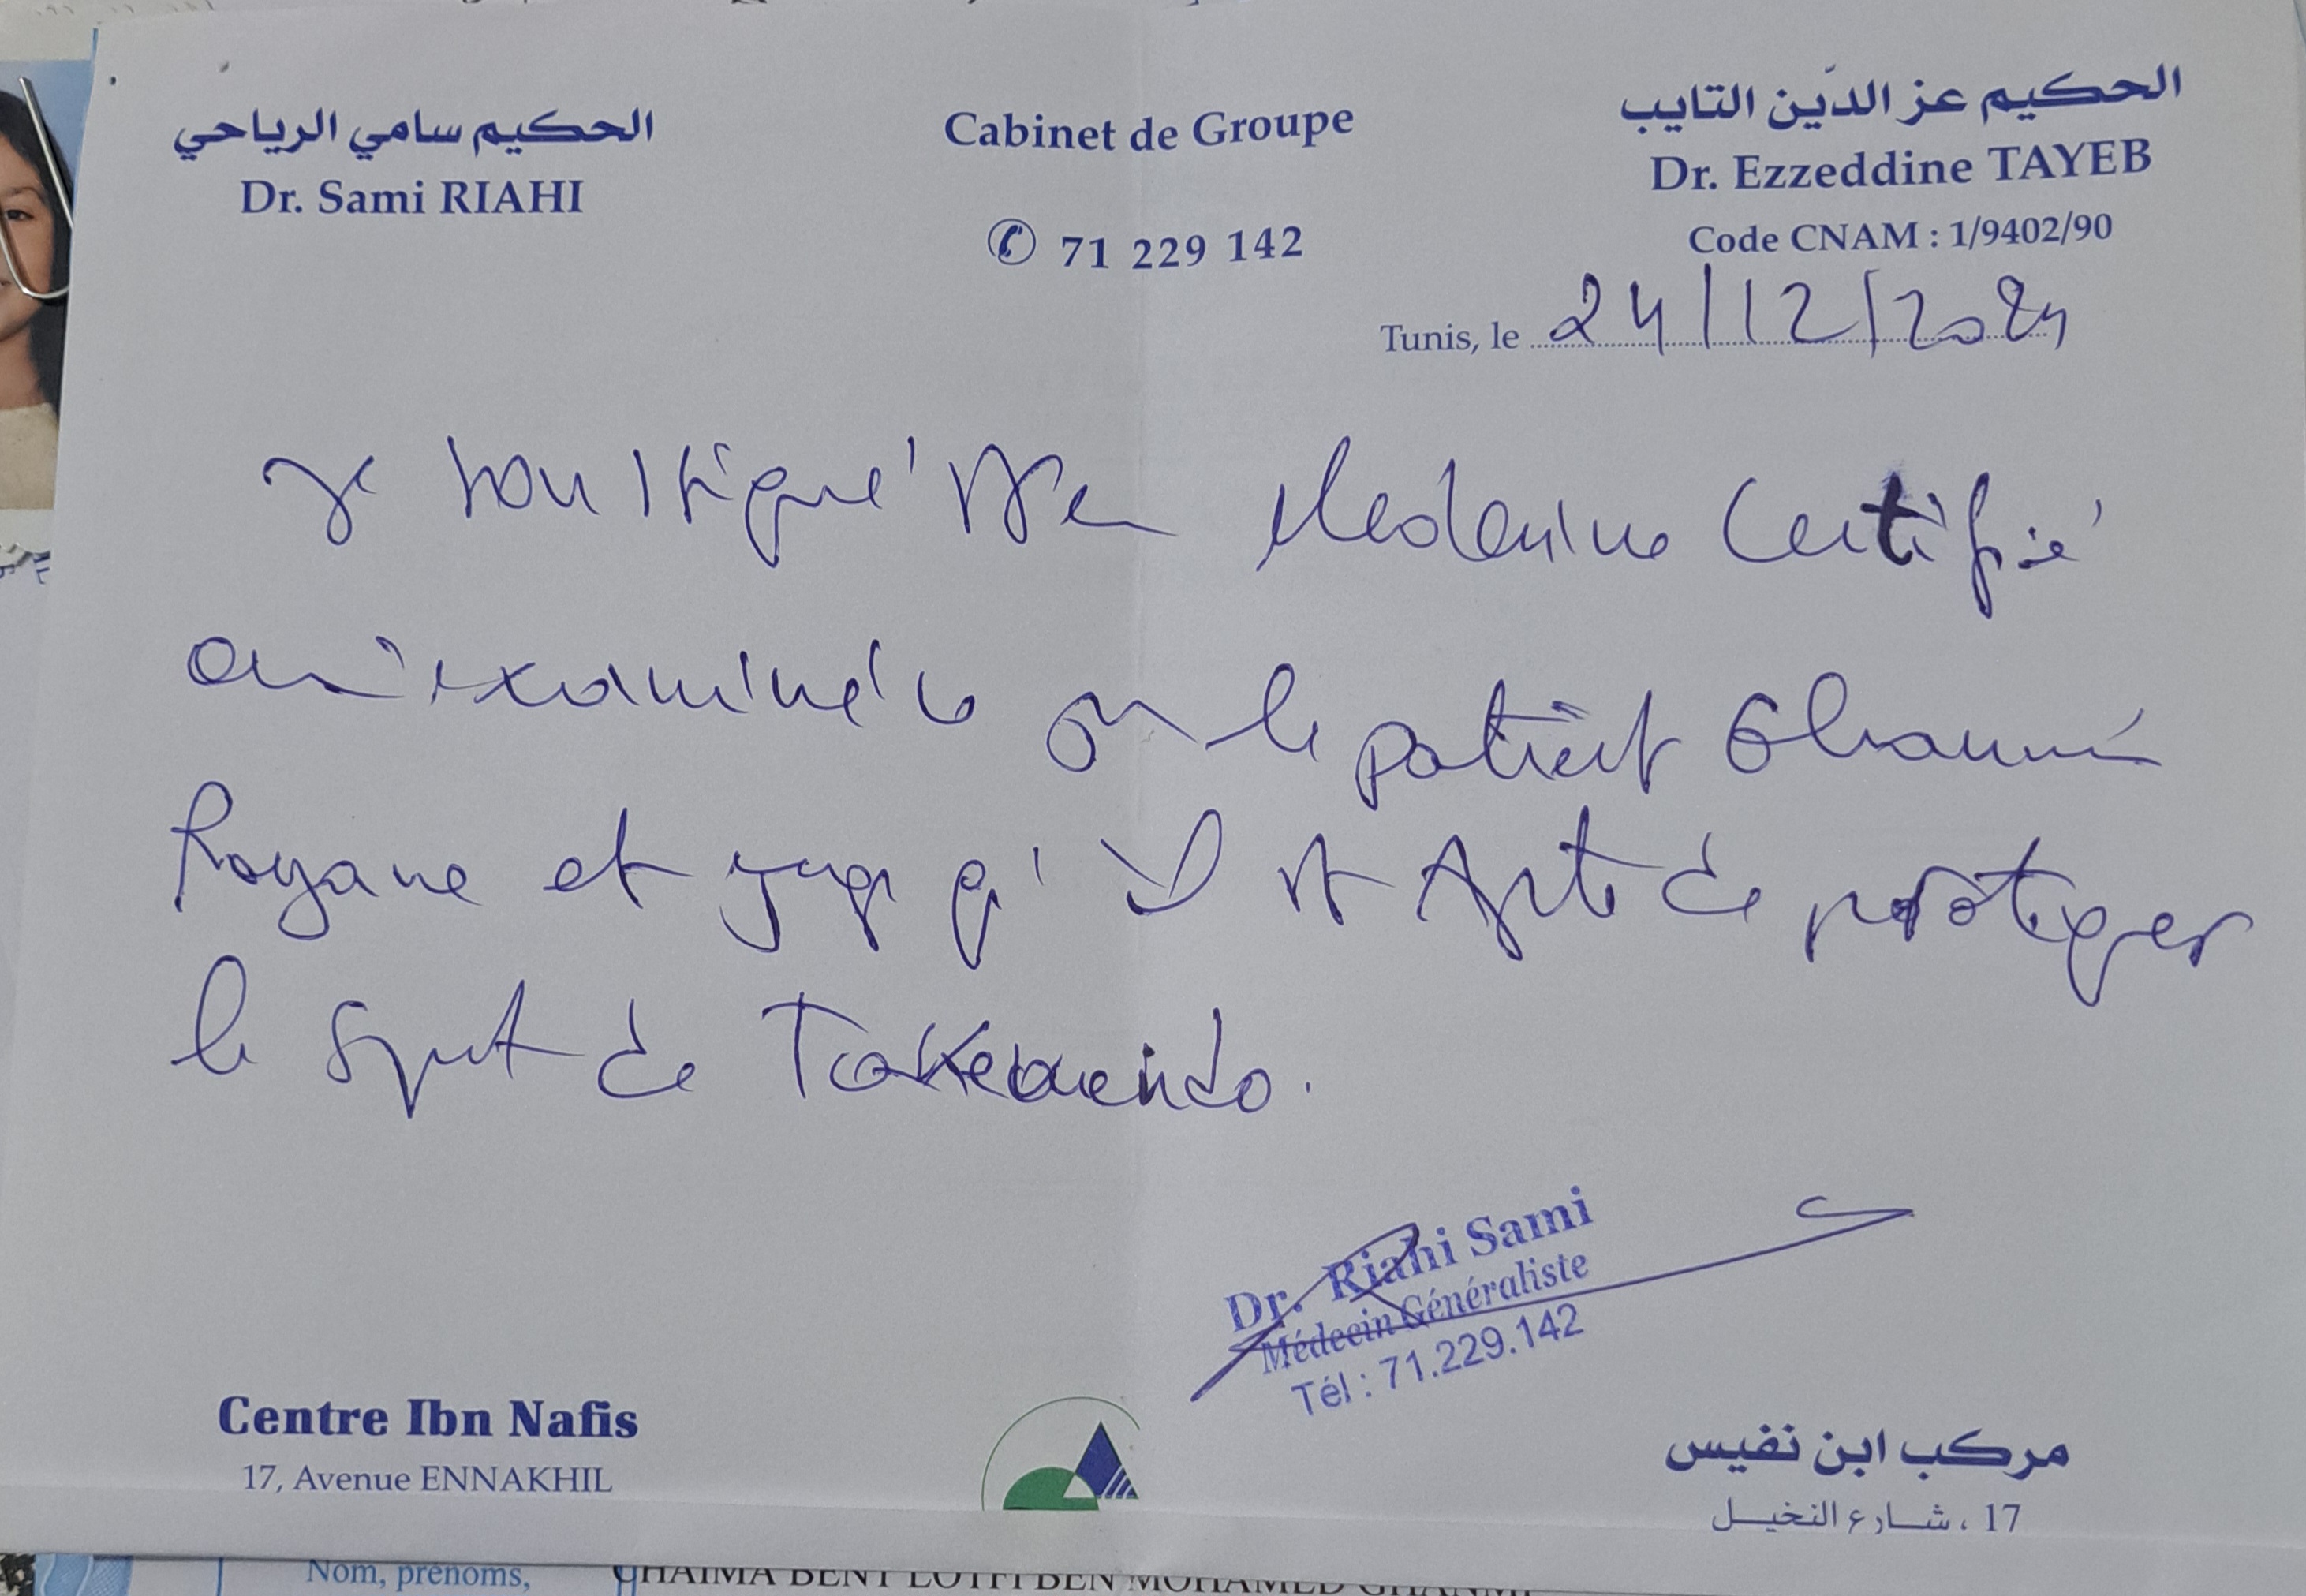 الحكيم سامي الرياحي
Dr. Sami RIAHI
Cabinet de Groupe
71 229 142
الحكيم عز الدّين التايب
Dr. Ezzeddine TAYEB
Code CNAM : 1/9402/90
Tunis, le 24/12/2024
Je soussigné Dr en Medecine Certifié
avoir examiné ce jour le patient Ghanmi
Rayane et juge qu'il est Apte de pratiquer
le sport de Takewendo.
Dr. Riahi Sami
Médecin Généraliste
Tél : 71.229.142
Centre Ibn Nafis
17, Avenue ENNAKHIL
مركب ابن نفيس
17 ، شارع النخيل
Nom, prénoms,
CHAIMA BENT LOTFI BEN MOHAMED GHANMI